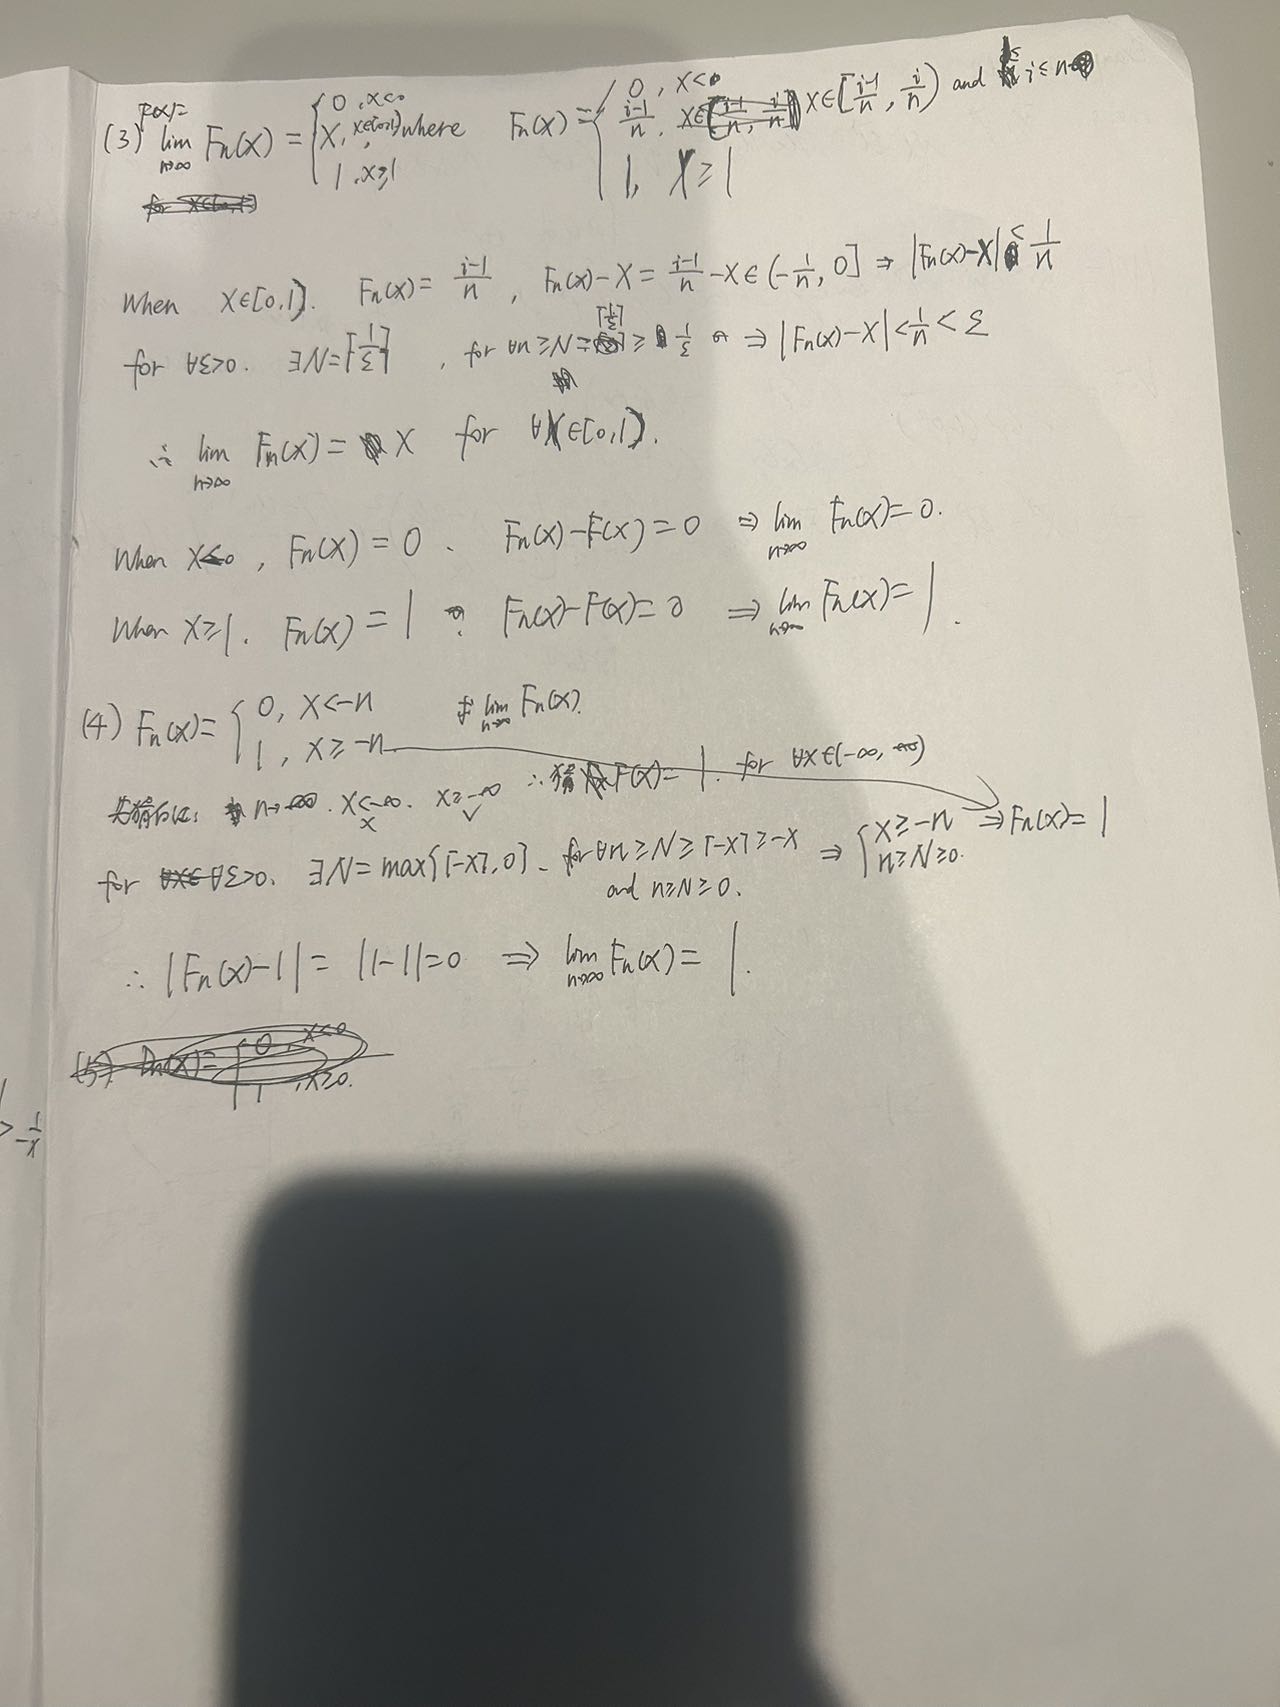 F(x)=
(3) lim n→∞ Fn(x) = { 0, x<0 ; x, x∈[0,1) ; 1, x≥1 where Fn(x) = { 0, x<0 ; (i-1)/n, x∈[(i-1)/n, i/n) and i≤n ; 1, x≥1
When x∈[0,1). Fn(x) = (i-1)/n, Fn(x)-x = (i-1)/n - x ∈ (-1/n, 0] ⇒ |Fn(x)-x| < 1/n
for ∀ε>0. ∃N=⌈1/ε⌉, for ∀n≥N=⌈1/ε⌉≥1/ε ⇒ |Fn(x)-x| < 1/n < ε
∴ lim n→∞ Fn(x) = x for ∀x∈[0,1).
When x<0, Fn(x) = 0. Fn(x)-F(x) = 0 ⇒ lim n→∞ Fn(x) = 0.
When x≥1. Fn(x) = 1, Fn(x)-F(x) = 0 ⇒ lim n→∞ Fn(x) = 1.
(4) Fn(x) = { 0, x<-n ; 1, x≥-n 求 lim n→∞ Fn(x).
先猜后证: n→∞. x<-∞ × x≥-∞ ✓ ∴猜 F(x) = 1. for ∀x∈(-∞, +∞)
for ∀ε>0. ∃N = max{⌈-x⌉, 0}. for ∀n≥N≥⌈-x⌉≥-x ⇒ { x≥-n ; n≥N≥0. ⇒ Fn(x) = 1
and n≥N≥0.
∴ |Fn(x)-1| = |1-1| = 0 ⇒ lim n→∞ Fn(x) = 1.
> 1/-x